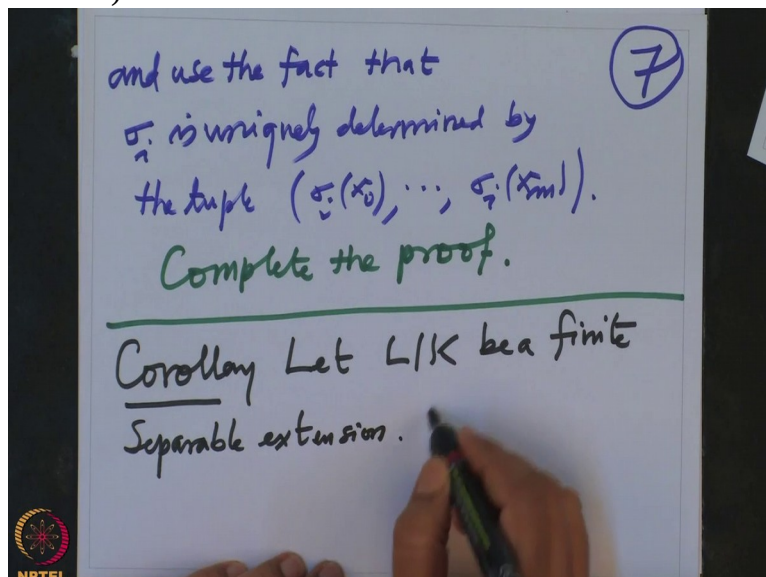 and use the fact that
7
σ_i is uniquely determined by
the tuple (σ_i(x_0), ..., σ_i(x_m)).
Complete the proof.
Corollary Let L/K be a finite
Separable extension.
NPTEL